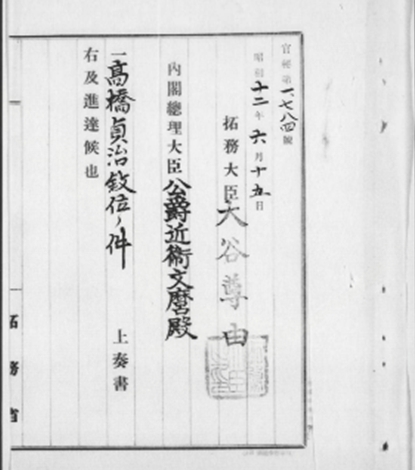 官秘第一、七八四號
昭和十二年六月十五日
拓務大臣大谷尊由
內閣總理大臣公爵近衞文麿殿
一高橋貞治敘位ノ件
上奏書
右及進達候也
拓務省